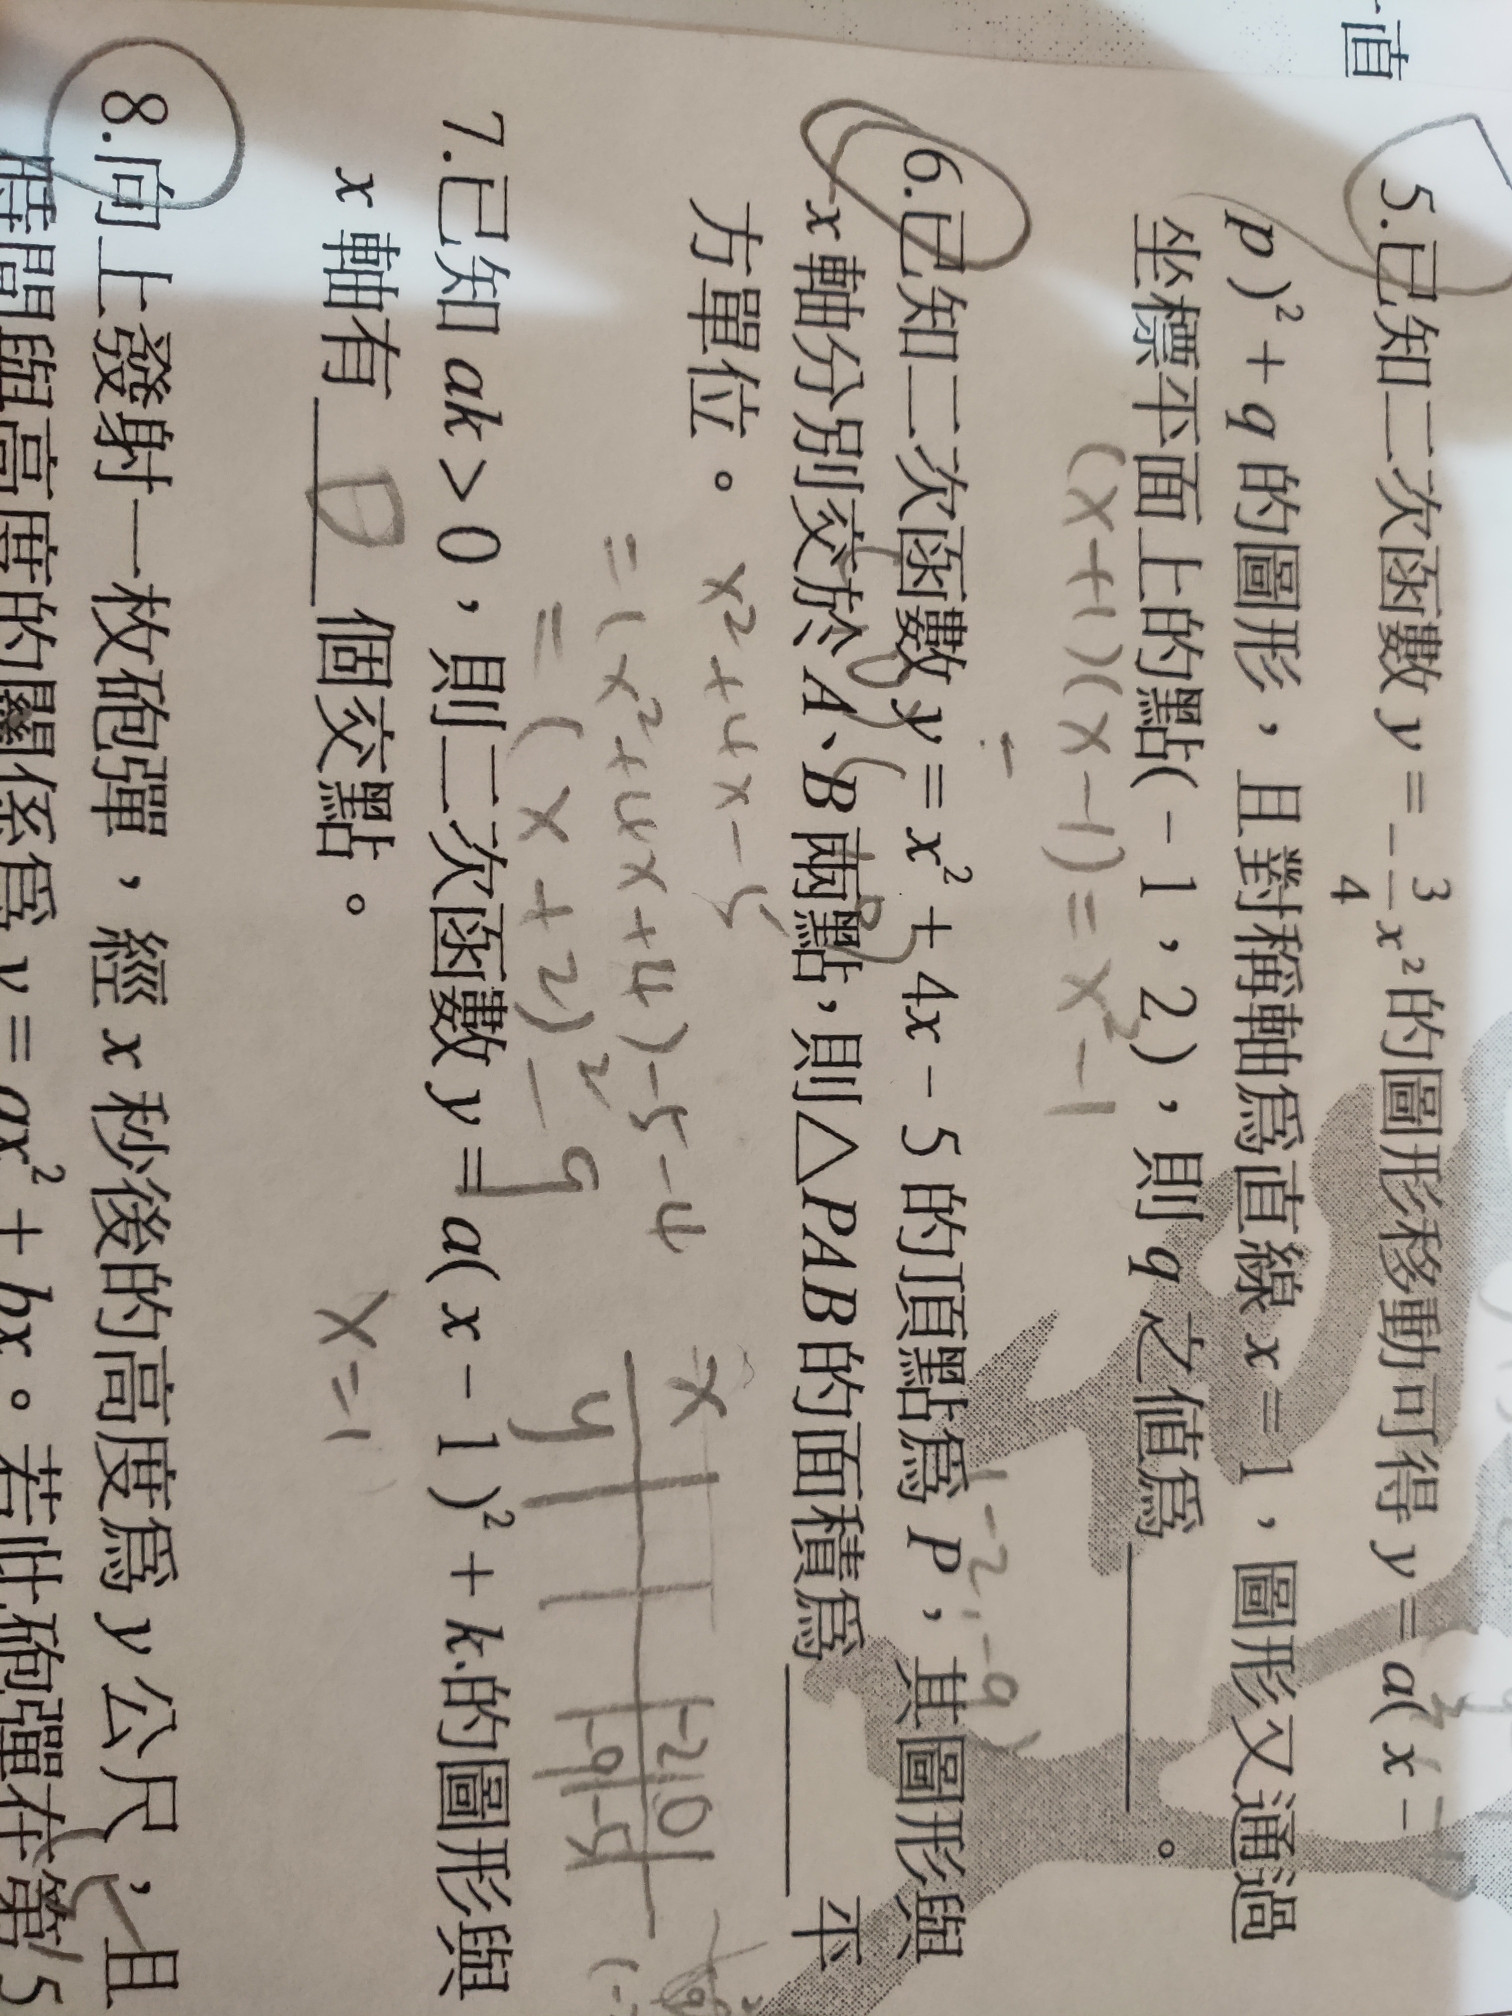 直
5.已知二次函數 y = -3/4 x²的圖形移動可得 y = a( x -
p )² + q 的圖形，且對稱軸為直線 x = 1，圖形又通過
坐標平面上的點( - 1，2 )，則 q 之值為＿＿＿。
(x+1)(x-1) = x²-1
6.已知二次函數 y = x² + 4x - 5 的頂點為 P，其圖形與
(-2,-9)
x 軸分別交於 A、B 兩點，則△PAB 的面積為＿＿＿平
方單位。
x²+4x-5
=(x²+4x+4)-5-4
=(x+2)²-9
x -2 0
y -9 -5
7.已知 ak > 0，則二次函數 y = a( x - 1 )² + k 的圖形與
x 軸有 0 個交點。
x=1
8.向上發射一枚砲彈，經 x 秒後的高度為 y 公尺，且
時間與高度的關係為 y = ax² + bx。若此砲彈在第 5